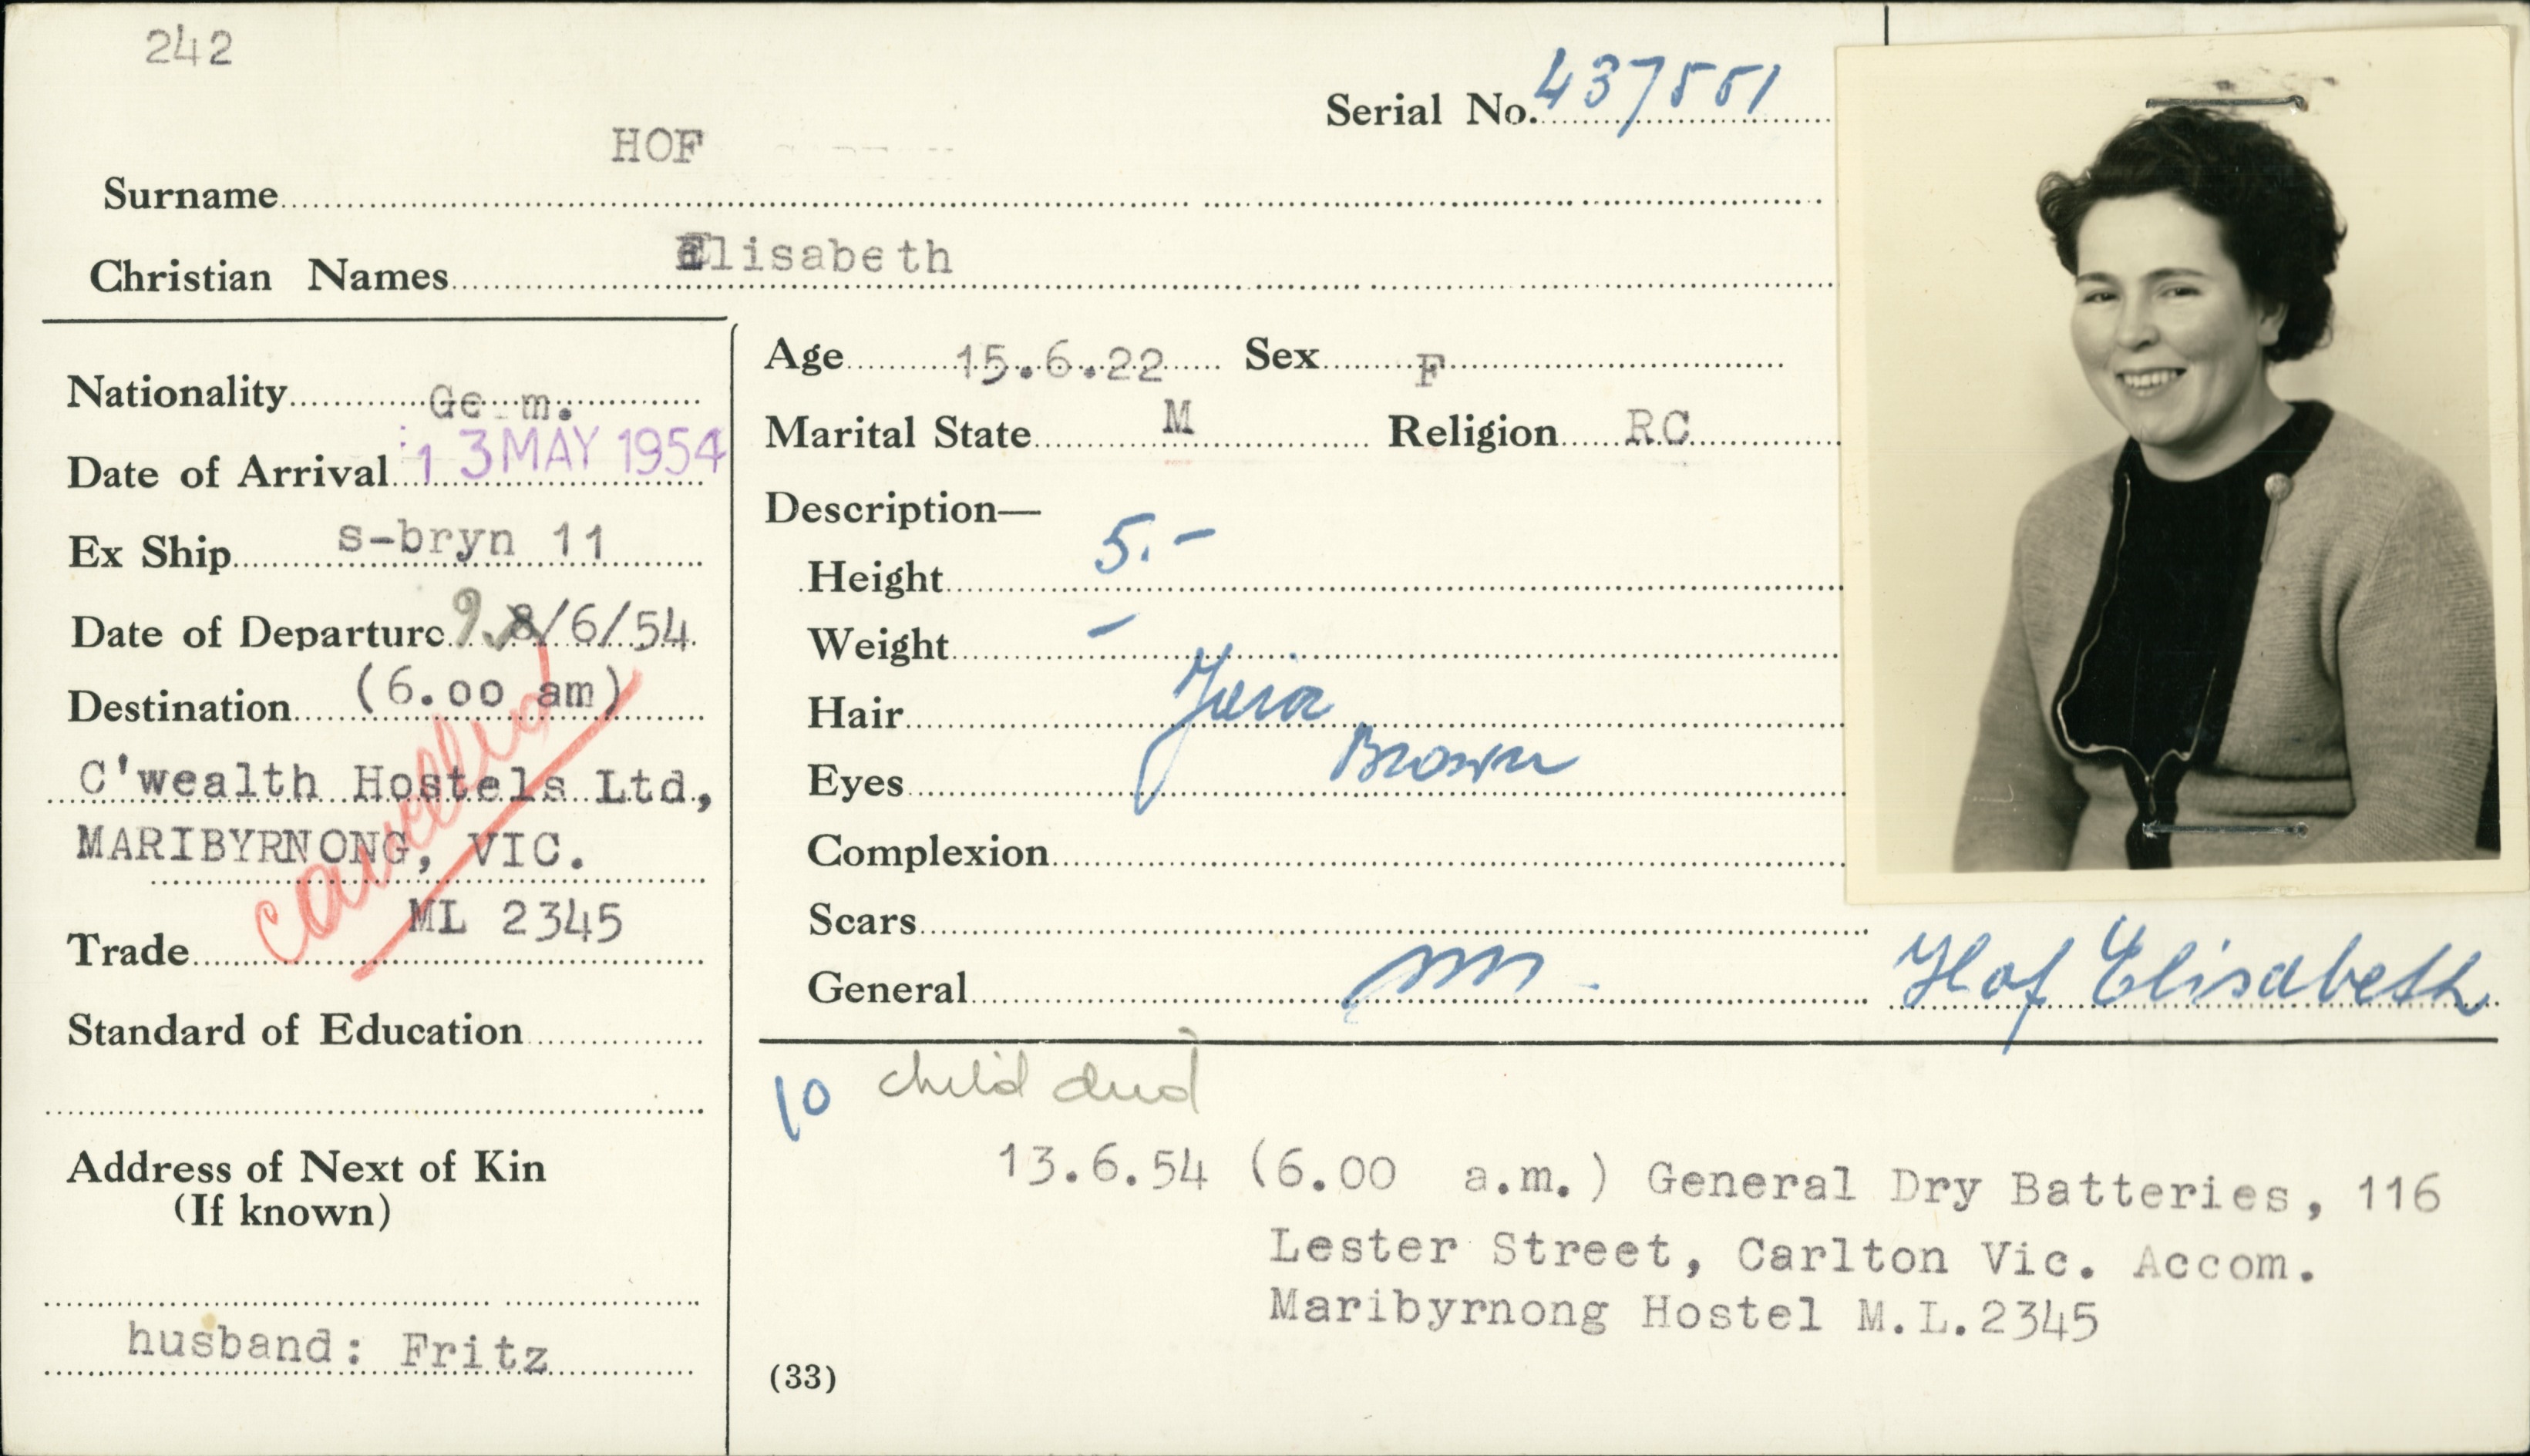 242
Serial No. 437551
HOF
Surname
Christian Names Elisabeth
Nationality Ge m.
Date of Arrival 13 MAY 1954
Ex Ship s-bryn 11
Date of Departure 9. 8/6/54
Destination (6.00 am)
C'wealth Hostels Ltd,
MARIBYRNONG, VIC.
cancelled
ML 2345
Trade
Standard of Education
Address of Next of Kin
(If known)
husband: Fritz
Age 15.6.22 Sex F
Marital State M Religion RC
Description—
Height 5.-
Weight -
Hair
Eyes Brown
Complexion
Scars
General
Hof Elisabeth
10 child died
13.6.54 (6.00 a.m.) General Dry Batteries, 116
Lester Street, Carlton Vic. Accom.
Maribyrnong Hostel M.L.2345
(33)